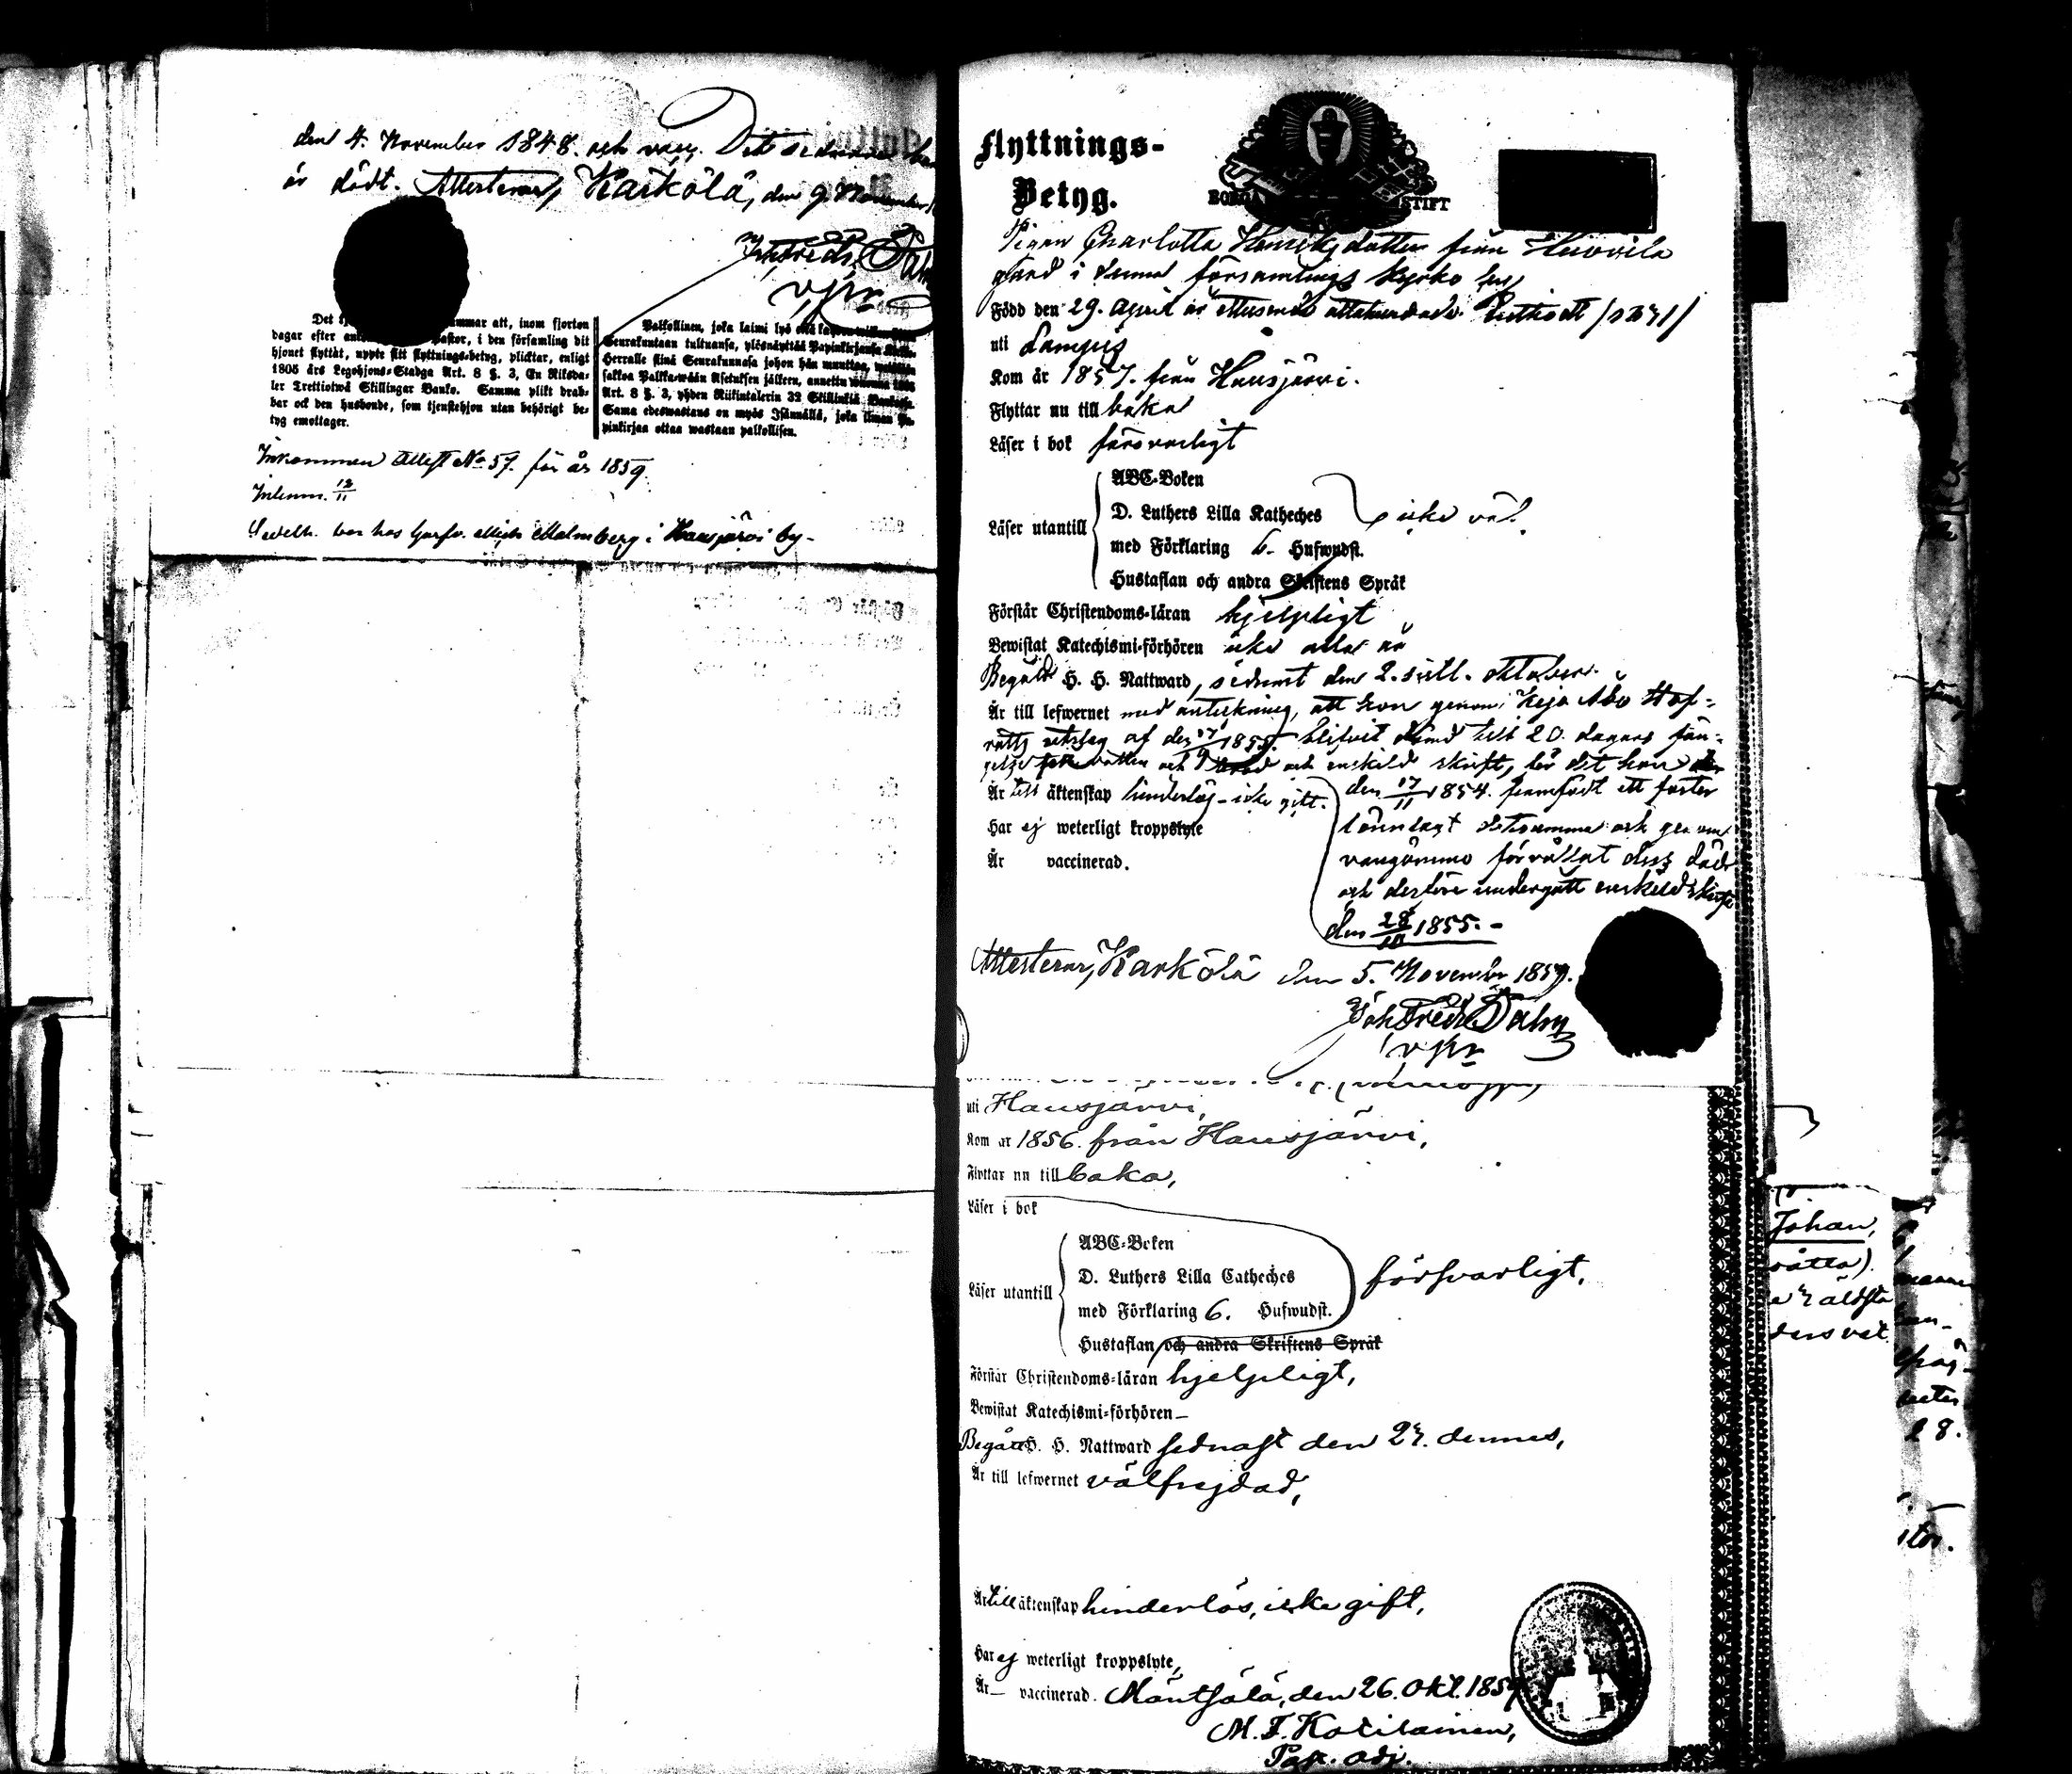 den 4. November 1848. och vacc. Det sednare
är dödt. Attesterar, Kärkölä, den 9. November
Joh Fredr Dahn
v pr
Det ammar att, inom fjorton
dagar efter Pastor, i den församling dit
hjonet flyttat, uppte sitt flyttnings-betyg, plicktar, enligt
1805 års Legohjons-Stadga Art. 8 §. 3, En Riksda-
ler Trettiotwå Skillingar Banko. Samma plikt drab-
bar ock den husbonde, som tjenstehjon utan behörigt be-
tyg emottager.
Palkollinen, joka laimi lyö
Seurakuntaan tultuansa, ylösnäyttää Papinkirjansa
Herralle siinä Seurakunnasa johon hän muuttaa,
sakkoa Palkka-wäen Asetuksen jälkeen, annettu wuonna 1805
Art. 8 §. 3, yhden Riikintalerin 32 Skillinkiä Bankosa.
Sama edeswastaus on myös Isännällä, joka ilman Pa-
pinkirjaa ottaa wastaan palkollisen.
Inkommen Attest No 57. för år 1859.
Inlemn. 12/11
hos Garfv. Malmberg i Hausjärvi by-
Flyttnings-
Betyg.
BORGÅ STIFT
Pigan Charlotta Henriksdotter från Huovila
gård i denna församlings kyrko by
Född den 29. April år ettusende ottahundrade Trettioett /1831/
uti Lampis
Kom år 1857. från Hausjärvi.
Flyttar nu till baka
Läser i bok försvarligt
ABC-Boken
Läser utantill D. Luthers Lilla Katheches icke väl.
med Förklaring 6. Hufwudst.
Hustaflan och andra Skriftens Språk
Förstår Christendoms-läran hjelpligt
Bewistat Katechismi-förhören icke alla år
Begått H. H. Nattward, sednast den 2. sistl. oktober.
Är till lefwernet med anteckning, att hon genom Kejs Åbo Hof-
rätts utslag af den 1855. blifvit dömd till 20. dagars fän-
gelse vatten och bröd och enskild skrift, för det hon
Är till äktenskap hinderlös - icke gift. den 17/11 1854. framfödt ett foster
Har ej weterligt kroppslyte lönnlagt detsamma och genom
Är vaccinerad. vangömmo förvållat dess död
och derföre undergått enskild skrift
den 28/10 1855. -
Attesterar, Kärkölä den 5. November 1859.
Joh Fredr Dahn
v pr
uti Hausjärvi,
Kom år 1856. från Hausjärvi,
Flyttar nu till baka,
Läser i bok
ABC-Boken
Läser utantill D. Luthers Lilla Catheches försvarligt,
med Förklaring 6. Hufwudst.
Hustaflan och andra Skriftens Språk
Förstår Christendoms-läran hjelpligt,
Bewistat Katechismi-förhören —
Begått H. H. Nattward sednast den 23. dennes,
Är till lefwernet välfrejdad,
Är till äktenskap hinderlös, icke gift,
Har ej weterligt kroppslyte,
Är — vaccinerad. Mäntsälä, den 26. Okt. 1859
M. F. Kotilainen,
Past. adj.
Johan,